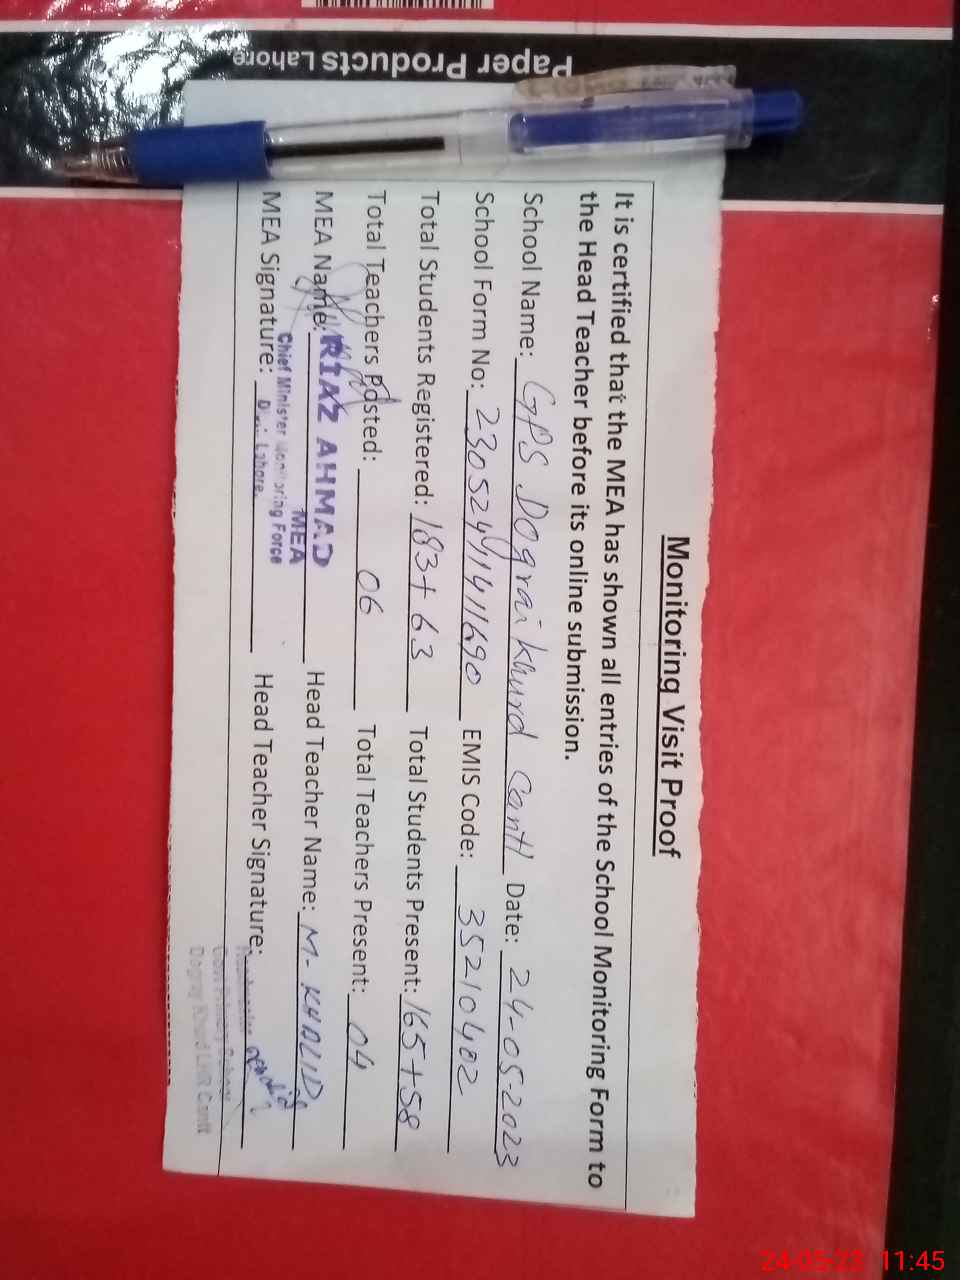 Paper Products Lahore
Monitoring Visit Proof
It is certified that the MEA has shown all entries of the School Monitoring Form to
the Head Teacher before its online submission.
School Name: GPS Dograi Khurd Cantt Date: 24-05-2023
School Form No: 2305244141 1690 EMIS Code: 35210402
Total Students Registered: 183+63 Total Students Present: 165+58
Total Teachers Posted: 06 Total Teachers Present: 04
MEA Name: RIAZ AHMAD Head Teacher Name: M-KHALID
MEA
Chief Minister Monitoring Force
MEA Signature: Head Teacher Signature:
Distt: Lahore.
Headmaster
Govt Primary School
Dogray Khurd LHR Cantt
24-05-23 11:45